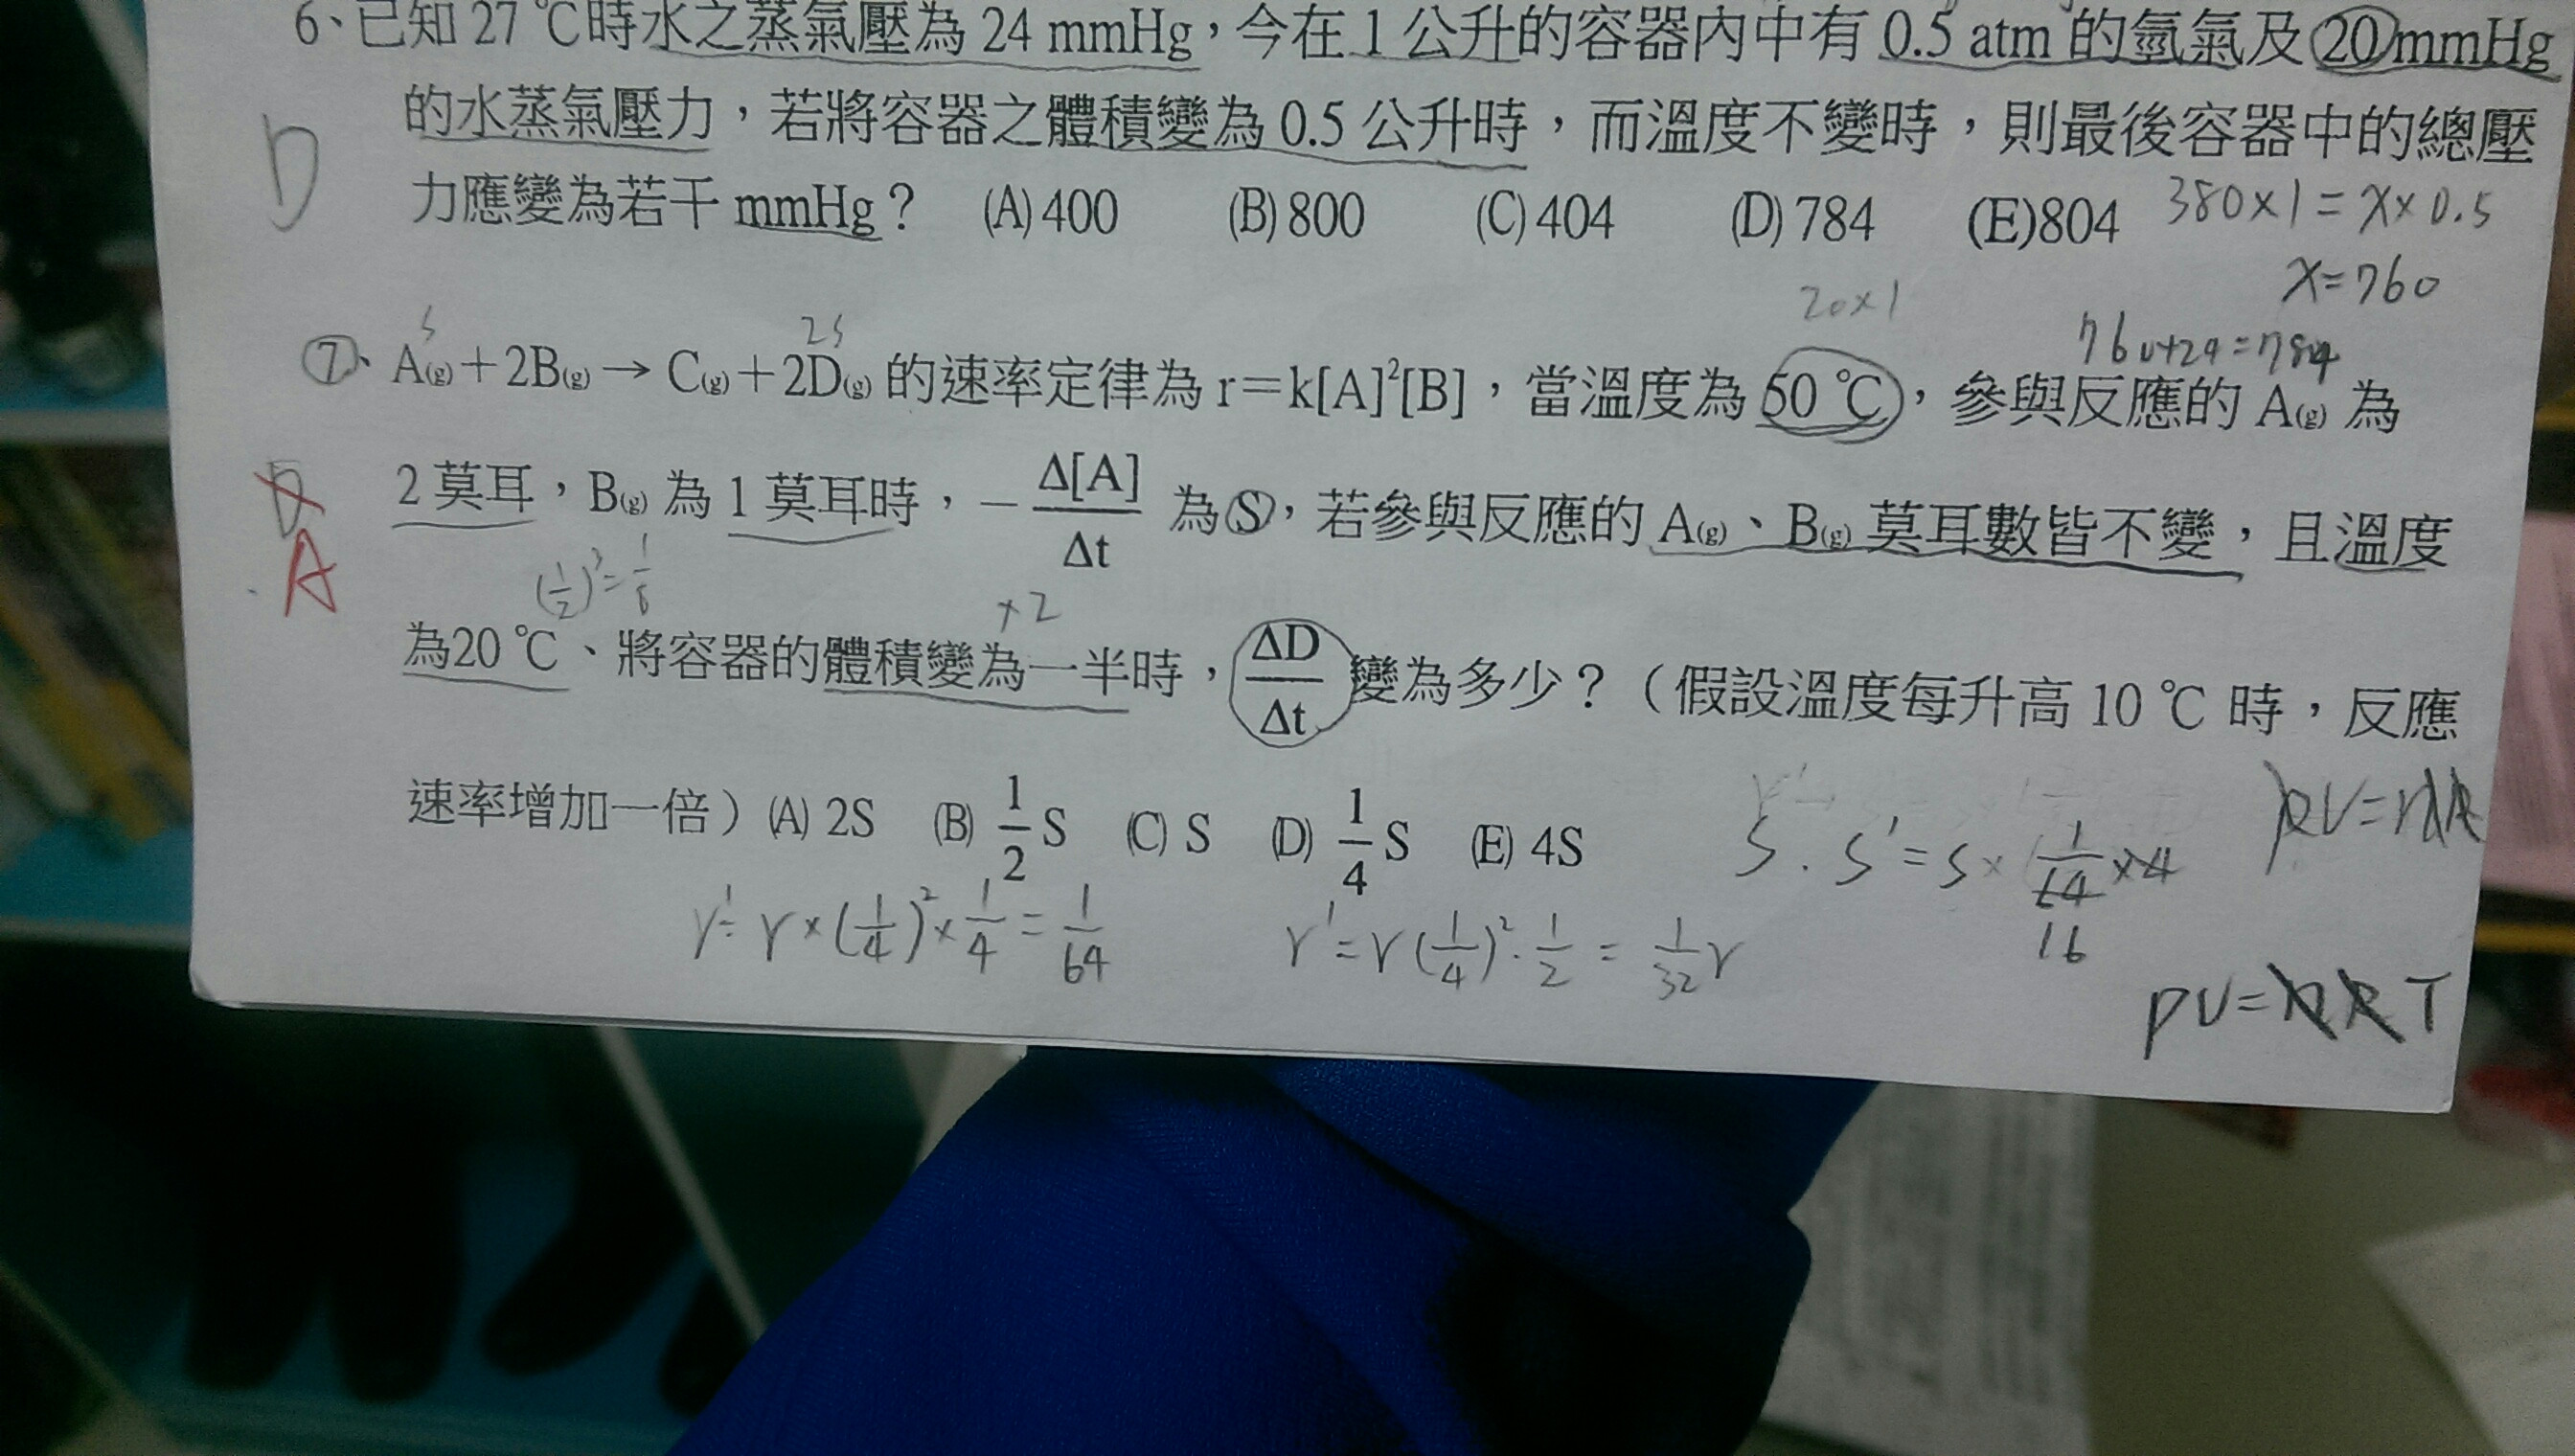 6、已知 27 ℃時水之蒸氣壓為 24 mmHg，今在 1 公升的容器內中有 0.5 atm 的氫氣及 20 mmHg
的水蒸氣壓力，若將容器之體積變為 0.5 公升時，而溫度不變時，則最後容器中的總壓
D
力應變為若干 mmHg？ (A) 400 (B) 800 (C) 404 (D) 784 (E)804
380×1=x×0.5
x=760
20×1
760+24=784
S
2S
7、A(g)＋2B(g)→C(g)＋2D(g) 的速率定律為 r＝k[A]²[B]，當溫度為 50 ℃，參與反應的 A(g) 為
D
A
2 莫耳，B(g) 為 1 莫耳時，－Δ[A]/Δt 為 S，若參與反應的 A(g)、B(g) 莫耳數皆不變，且溫度
(1/2)³=1/8
×2
為20 ℃、將容器的體積變為一半時，ΔD/Δt 變為多少？（假設溫度每升高 10 ℃ 時，反應
速率增加一倍）(A) 2S (B) 1/2 S (C) S (D) 1/4 S (E) 4S
S . S'=S×1/64×4
16
r'=r×(1/4)²×1/4=1/64
r'=r(1/4)²·1/2=1/32 r
PV=nRT